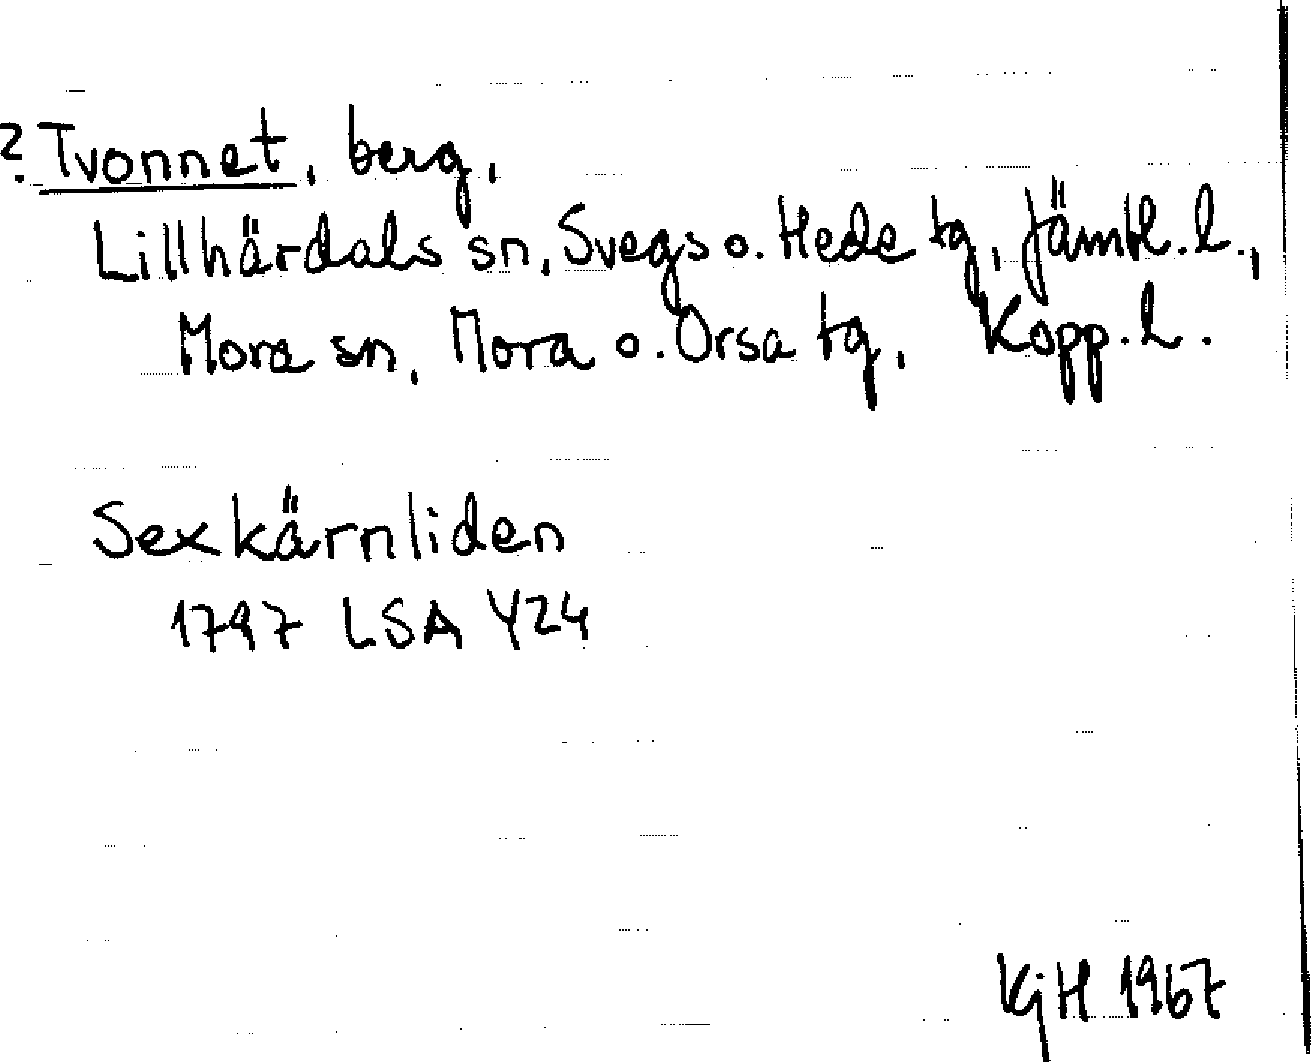 ? Tvonnet, berg,
Lillhärdals sn, Svegs o. Hede tg, Jämtl. l.,
Mora sn, Mora o. Orsa tg, Kopp. l.
Sexkärnliden
1797 LSA Y24
KjH 1967